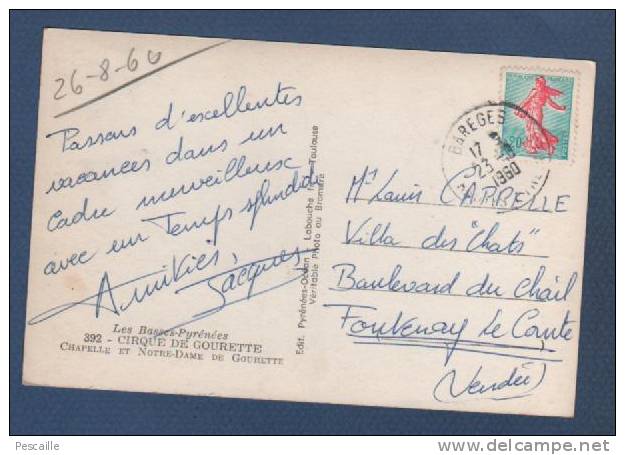 26-8-60
Passons d'excellentes
vacances dans un
cadre merveilleux
avec un temps splendide
Amitiés,
Jacques
Les Basses-Pyrénées
392 - CIRQUE DE GOURETTE
CHAPELLE ET NOTRE-DAME DE GOURETTE
Edit. Pyrénées-Océan Labouche Toulouse
Véritable Photo au Bromure
BAREGES
17
23-
1960
Mr Louis CARBELLE
Villa des "Chats"
Boulevard du Chail
Fontenay le Comte
(Vendée)
Pescaille
www.delcampe.net